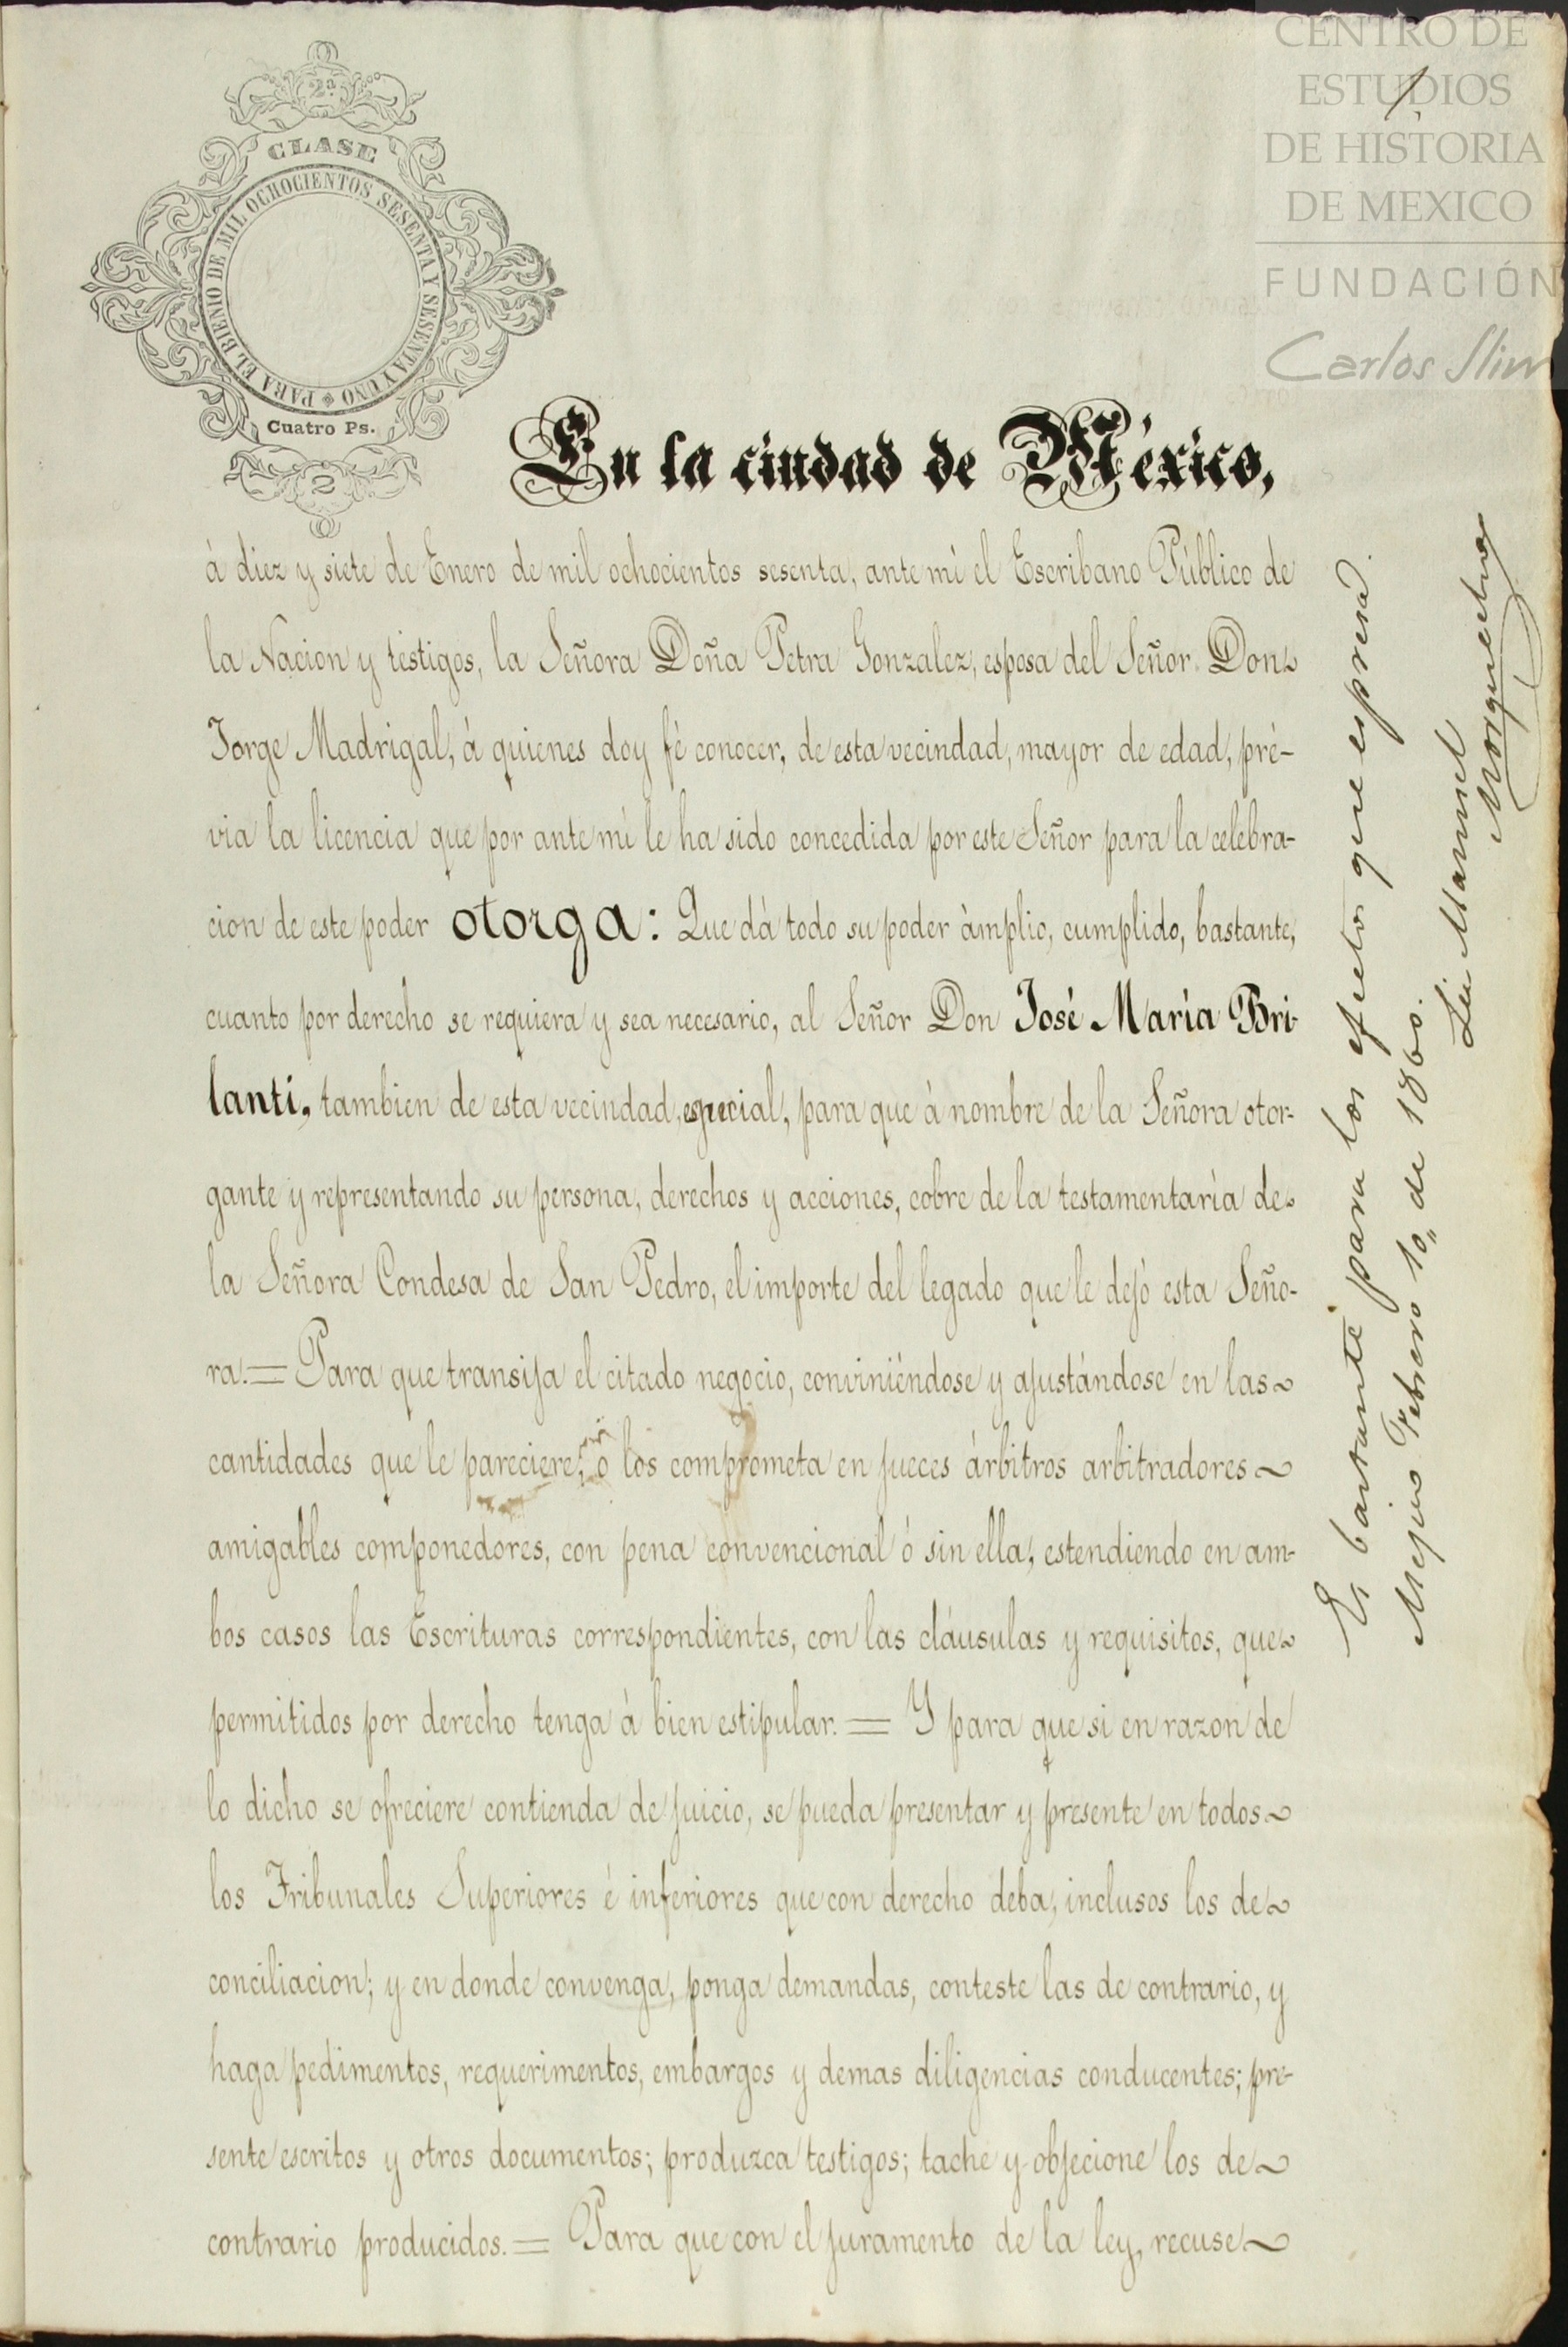 CENTRO DE
ESTUDIOS
DE HISTORIA
DE MEXICO
FUNDACIÓN
Carlos Slim
2ª
CLASE
PARA EL BIENIO DE MIL OCHOCIENTOS SESENTA Y SESENTA Y UNO
Cuatro Ps.
2
En la ciudad de México,
à diez y siete de Enero de mil ochocientos sesenta, ante mì el Escribano Público de
la Nacion y testigos, la Señora Doña Petra Gonzalez, esposa del Señor Don
Jorge Madrigal, à quienes doy fè conocer, de esta vecindad, mayor de edad, pré-
via la licencia que por ante mì le ha sido concedida por este Señor para la celebra-
cion de este poder otorga: Que dà todo su poder àmplio, cumplido, bastante,
cuanto por derecho se requiera y sea necesario, al Señor Don José María Bri-
lanti, tambien de esta vecindad, especial, para que à nombre de la Señora otor-
gante y representando su persona, derechos y acciones, cobre de la testamentarìa de
la Señora Condesa de San Pedro, el importe del legado que le dejó esta Seño-
ra. = Para que transija el citado negocio, conviniéndose y ajustándose en las
cantidades que le pareciere, ó los comprometa en jueces árbitros arbitradores
amigables componedores, con pena convencional ó sin ella, estendiendo en am-
bos casos las Escrituras correspondientes, con las cláusulas y requisitos, que
permitidos por derecho tenga à bien estipular. = Y para que si en razon de
lo dicho se ofreciere contienda de juicio, se pueda presentar y presente en todos
los Tribunales Superiores é inferiores que con derecho deba, inclusos los de
conciliacion; y en donde convenga, ponga demandas, conteste las de contrario, y
haga pedimentos, requerimentos, embargos y demas diligencias conducentes; pre-
sente escritos y otros documentos; produzca testigos; tache y objecione los de
contrario producidos. = Para que con el juramento de la ley, recuse
Es bastante para los efectos que espresa.
Mejico Febrero 10, de 1860.
Lic Manuel